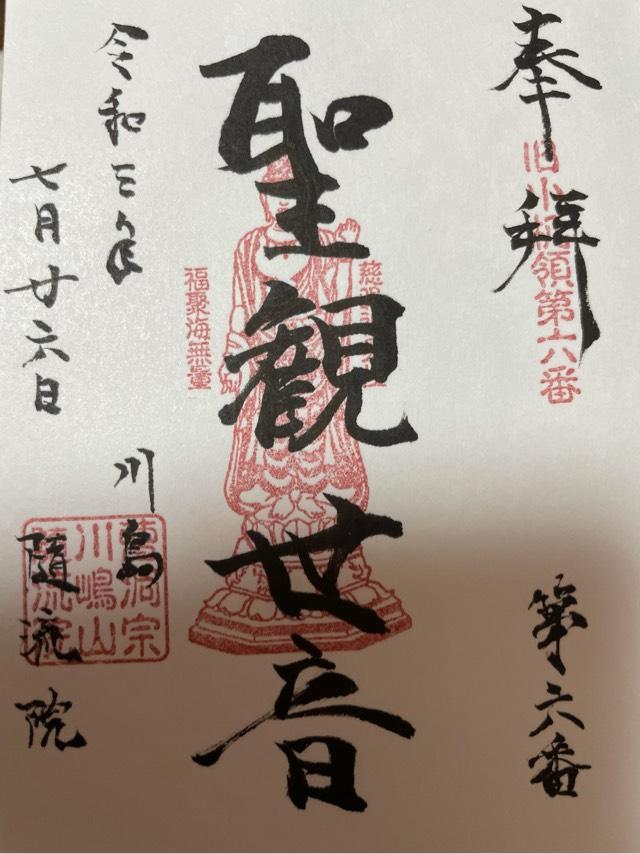 奉拝
旧小机領第六番
第六番
聖観世音
慈眼
福聚海無量
令和三年
七月廿六日
川島
随流院
曹洞宗
川嶋山
随流院